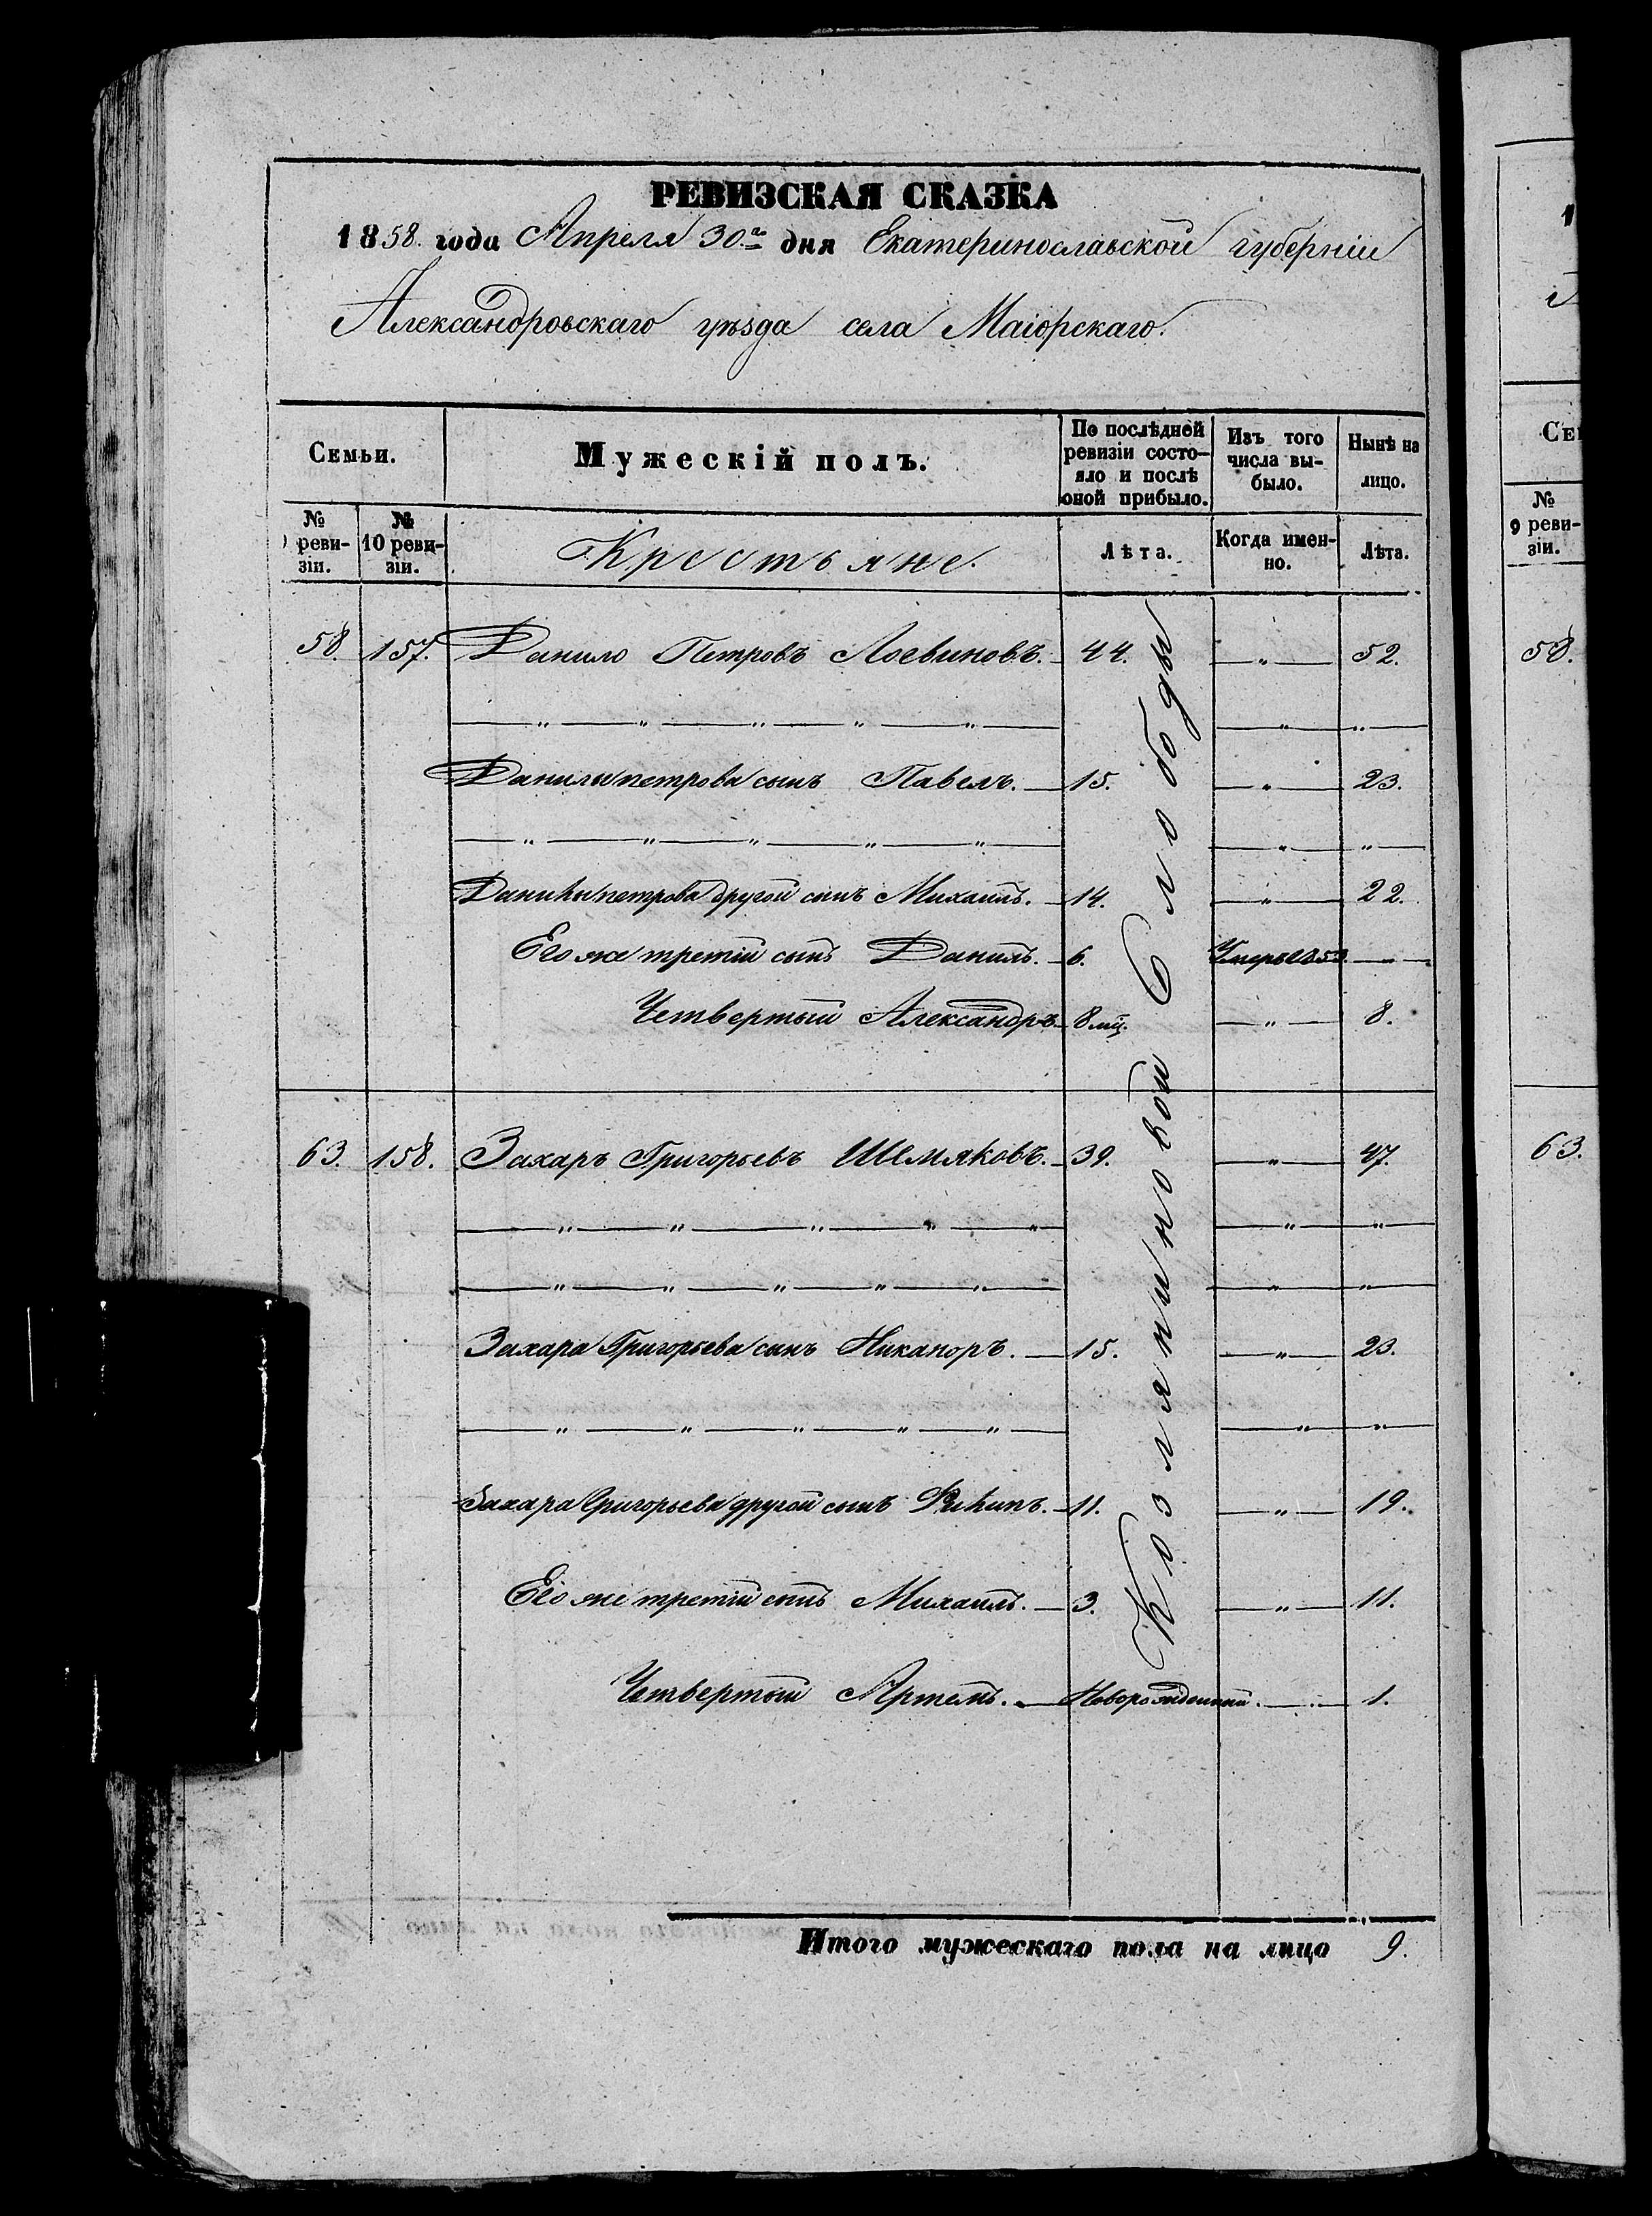 РЕВИЗСКАЯ СКАЗКА
1858. года Апреля 30го дня Екатеринославской губерніи
Александровскаго уѣзда села Маіорскаго.
Семьи. Мужескій полъ. По послѣдней ревизіи состояло и послѣ оной прибыло. Изъ того числа выбыло. Нынѣ на лицо.
№ ревизіи. № 10 ревизіи. Крестьяне. Лѣта. Когда именно. Лѣта.
58. 157. Данило Петровъ Логвиновъ. 44. — „ — 52.
— „ — „ — „ — „ — „ — — „ — „ —
Данилы петрова сынъ Павелъ. — 15. — „ — 23.
— „ — „ — „ — „ — „ — — „ — „ —
Данилы петрова другой сынъ Михаилъ. — 14. — „ — 22.
Его же третій сынъ Данилъ. — 6. Умеръ в — „ —
Четвертый Александръ. 8 мц. — „ — 8.
63. 158. Захаръ Григорьевъ Шемяковъ. — 39. — „ — 47.
— „ — „ — „ — „ — „ — — „ — „ —
— „ — „ — „ — „ — „ — — „ — „ —
Захара Григорьева сынъ Никаноръ. — 15. — „ — 23.
— „ — „ — „ — „ — „ — — „ — „ —
Захара Григорьева другой сынъ — 11. — „ — 19.
Его же третій сынъ Михаилъ. — 3. — „ — 11.
Четвертый Артемъ. — Новорожденный. — „ — 1.
Козляниновой Слободы
Итого мужескаго пола на лицо 9.
№
9 ревизіи.
58.
63.